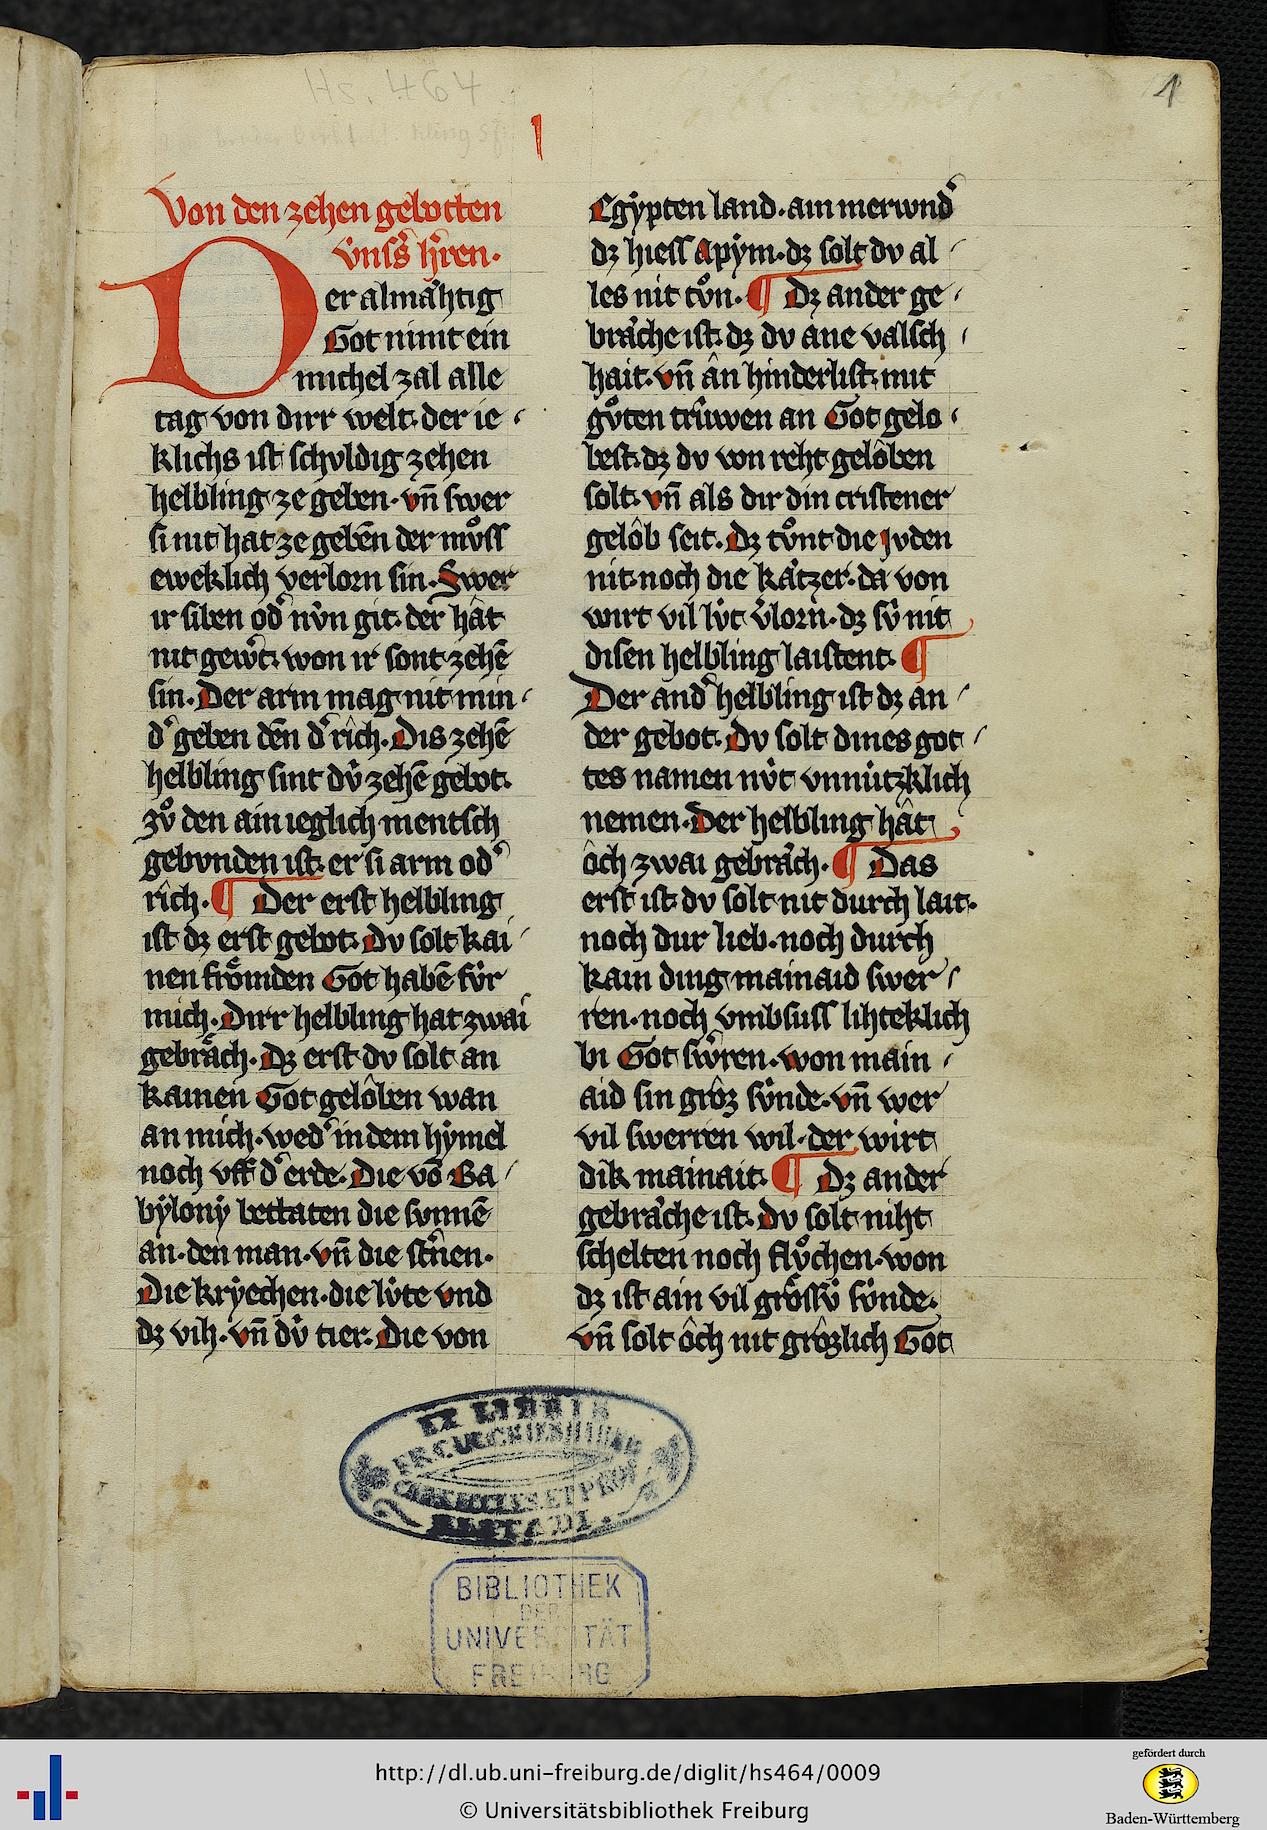 Hs. 464
1
I
Von den zehen gebotten
vnsͤs hͤren.
Der almaͤhtig
Got nimt ein
michel zal alle
tag von dirr welt. der ie
klichs ist schvldig zehen
helbling ze geben. vn̄ swer
si nit hat ze gebēn der mvͦss
eweklich verlorn sin. Swer
ir siben odͤ nv̇n git. der hât
nit gewͤt. won ir sont zehē
sin. Der arm mag nit min
dͤ geben dēn dͤ rîch. Dis zehē
helbling sint dv̇ zehē gebot.
zvͦ den ain ieglich mentsch
gebvnden ist. er si arm odͤ
rîch. ¶ Der erst helbling
ist dz erst gebot. Dv solt kai
nen froͤmden Got habē fv̇r
mich. Dirr helbling hat zwai
gebraͤch. Dz erst dv solt an
kainen Got gelôben wan
an mich. wedͤ in dem hẏmel
noch vff dͤ erde. Die vō Ba
bẏlonẏ bettaten die svnnē
an. den man. vn̄ die stͤnen.
Die krẏechen. die lv̇te vnd
dz vih. vn̄ dv̇ tier. Die von
Egẏpten land. ain merwndͤ
dz hiess Apẏm. dz solt dv al
les nit tvͦn. ¶ Dz ander ge
braͤche ist. dz dv ane valsch
hait. vn̄ ân hinderlist. mit
gvͦten trûwen an Got gelo
best. dz dv von reht gelôben
solt. vn̄ als dir din cristener
gelôb seit. Dz tvͦnt die jvden
nit. noch die kaͤtzer. da von
wirt vil lv̇t v̄lorn. dz sv̇ nit
disen helbling laistent. ¶
Der andͤ helbling ist dz an
der gebot. Dv solt dines got
tes namen nv̇t vnnùtzklich
nemen. Der helbling hât
ôch zwai gebraͤch. ¶ Das
erst ist. dv solt nit durch lait.
noch dur lieb. noch durch
kain ding mainaid swer
ren. noch vmbsuss lihteklich
bi Got swͤren. won main
aid sin grôz sv̇nde. vn̄ wer
vil swerren wil. der wirt
dik mainait. ¶ Dz ander
gebraͤche ist. Dv solt niht
schelten noch flvͦchen. won
dz ist ain vil groͤssv̇ sv̇nde.
vn̄ solt ôch nit grôzlich Got
EX LIBRIS
BIBLIOTHEK
DER
UNIVERSITÄT
FREIBURG
http://dl.ub.uni-freiburg.de/diglit/hs464/0009
© Universitätsbibliothek Freiburg
gefördert durch
Baden-Württemberg